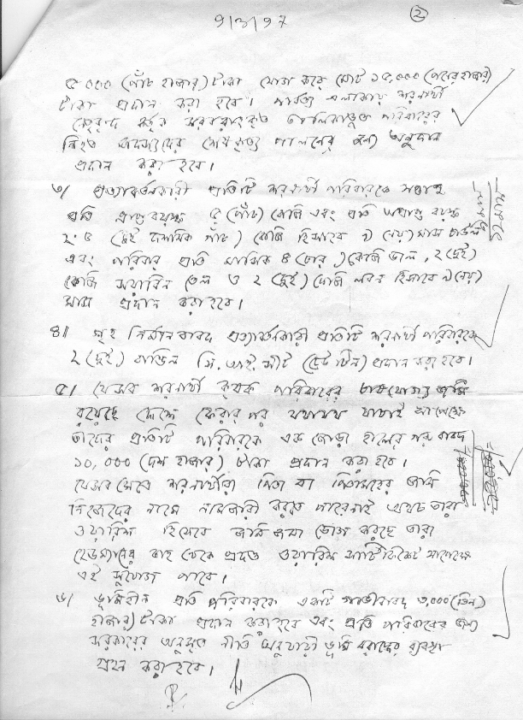 ৯/৩/৯৭
②
৫০০০ (পাঁচ হাজার) টাকা যোগ করে মোট ১৫,০০০ (পনের হাজার)
টাকা প্রদান করা হবে। পার্বত্য এলাকায় শরনার্থী
কর্তৃক সরবরাহকৃত তালিকাভুক্ত পরিবারের
নিহত সদস্যদের জন্য অনুদান
প্রদান করা হবে।
৩/ প্রত্যাবর্তনকারী প্রতিটি শরনার্থী পরিবারকে সপ্তাহ
প্রতি প্রাপ্ত বয়স্ক ৫ (পাঁচ) কেজি এবং প্রতি অপ্রাপ্ত বয়স্ক
২.৫ (দুই দশমিক পাঁচ) কেজি হিসাবে ৯ (নয়) মাস চাউল
এবং পরিবার প্রতি মাসিক ৪ (চার) কেজি ডাল, ২ (দুই)
কেজি সয়াবিন তেল ও ২ (দুই) কেজি লবন হিসাবে ৯ (নয়)
মাস প্রদান করা হবে।
৪। গৃহ নির্মান বাবদ প্রত্যাবর্তনকারী প্রতিটি শরনার্থী পরিবারকে
২ (দুই) বান্ডিল সি. আই. সীট (ঢেউ টিন) প্রদান করা হবে।
৫। যেসব শরনার্থী কৃষক পরিবারের চাষযোগ্য জমি
রয়েছে দেশে ফেরার পর যথাযথ যাচাই সাপেক্ষে
তাদের প্রতিটি পরিবারকে এক জোড়া হালের গরু বাবদ
১০,০০০ (দশ হাজার) টাকা প্রদান করা হবে।
যেসব শরনার্থীরা পিতা বা পিতামহের জমি
নিজেদের নামে নামজারী করতে পারে নাই অথচ তারা
ওয়ারিশ হিসেবে জমি ভোগ করছে তারা
হেডম্যানের কাছ থেকে প্রদত্ত ওয়ারিশ সার্টিফিকেট সাপেক্ষে
এই সুযোগ পাবে।
৬/ ভূমিহীন প্রতি পরিবারকে একটি গাভী বাবদ ৩,০০০ (তিন)
হাজার) টাকা প্রদান করা হবে এবং প্রতি পরিবারের জন্য
সরকারের অনুসৃত নীতি অনুযায়ী ভূমি বরাদ্দের ব্যবস্থা
গ্রহন করা হবে।